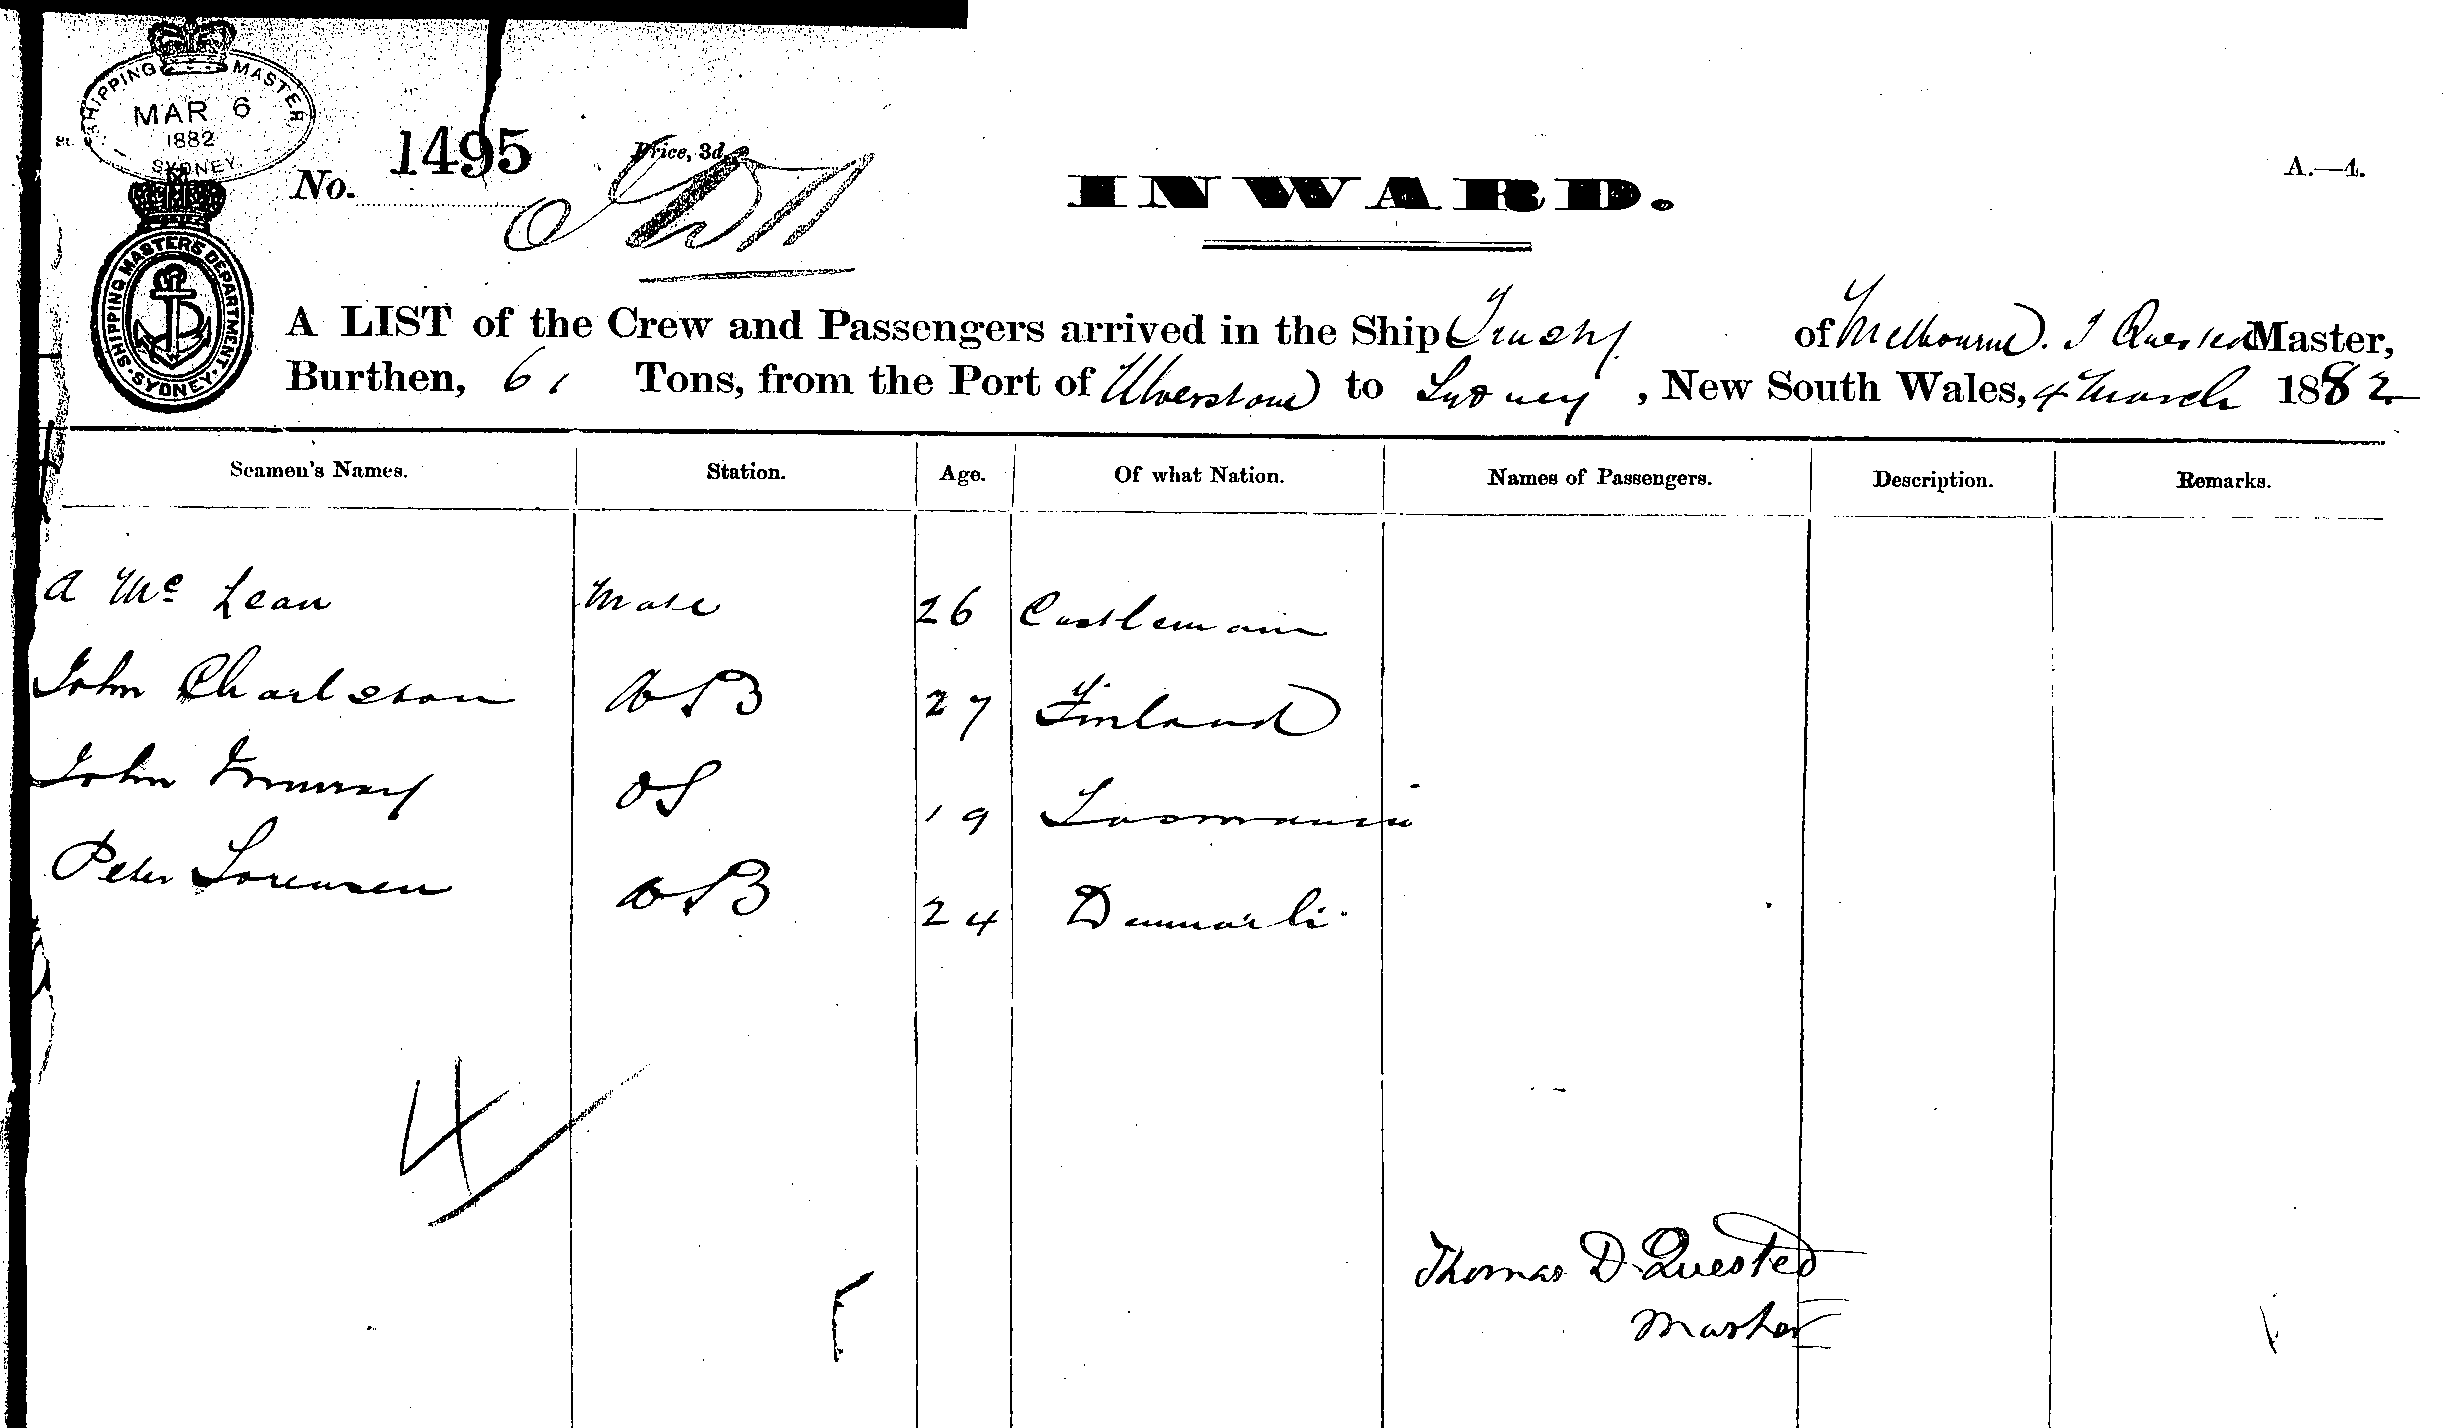 SHIPPING MASTER
MAR 6
1882
SYDNEY
No. 1495
Price, 3d.
INWARD.
A.—4.
SHIPPING MASTERS DEPARTMENT
SYDNEY
A LIST of the Crew and Passengers arrived in the Ship Trucky of Melbourne. T Quested Master,
Burthen, 61 Tons, from the Port of Ulverstone to Sydney, New South Wales, 4 March 1882
Seamen's Names. Station. Age. Of what Nation. Names of Passengers. Description. Remarks.
A Mc Lean Mate 26 Castlemain
John Charleston ABS 27 Finland
John Murray OS 19 Tasmania
Peter Sorensen ABS 24 Denmark
4
Thomas D Quested
Master